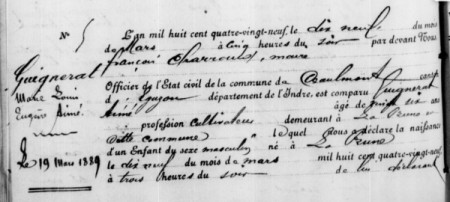 N° 5
Guignerat
Marie Louis
Eugène Aimé
Le 19 Mars 1889
L'an mil huit cent quatre-vingt-neuf, le dix neuf du mois
de Mars à cinq heures du soir par devant Nous
françois maire
Officier de l'État civil de la commune de Chaulmont canton
d département de l'Indre, est comparu Guignerat
Aimé âgé de ans
profession Cultivateur demeurant à La
dite commune lequel Nous a déclaré la naissance
d'un Enfant du sexe masculin né à La
le dix neuf du mois de mars mil huit cent quatre-vingt-neuf
à trois heures du soir